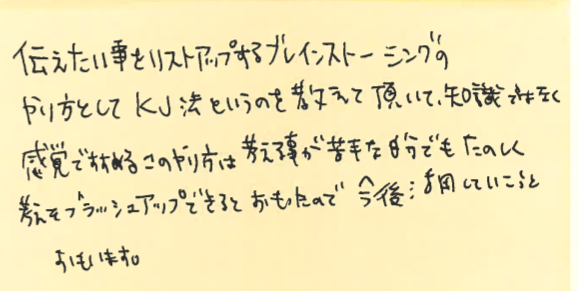 伝えたい事をリストアップするブレインストーミングの
やり方としてKJ法というのを教えて頂いて、知識ではなく
感覚ですすめるこのやり方は考え事が苦手な自分でもたのしく
考えをブラッシュアップできるとおもったので今後活用していこうと
おもいます。